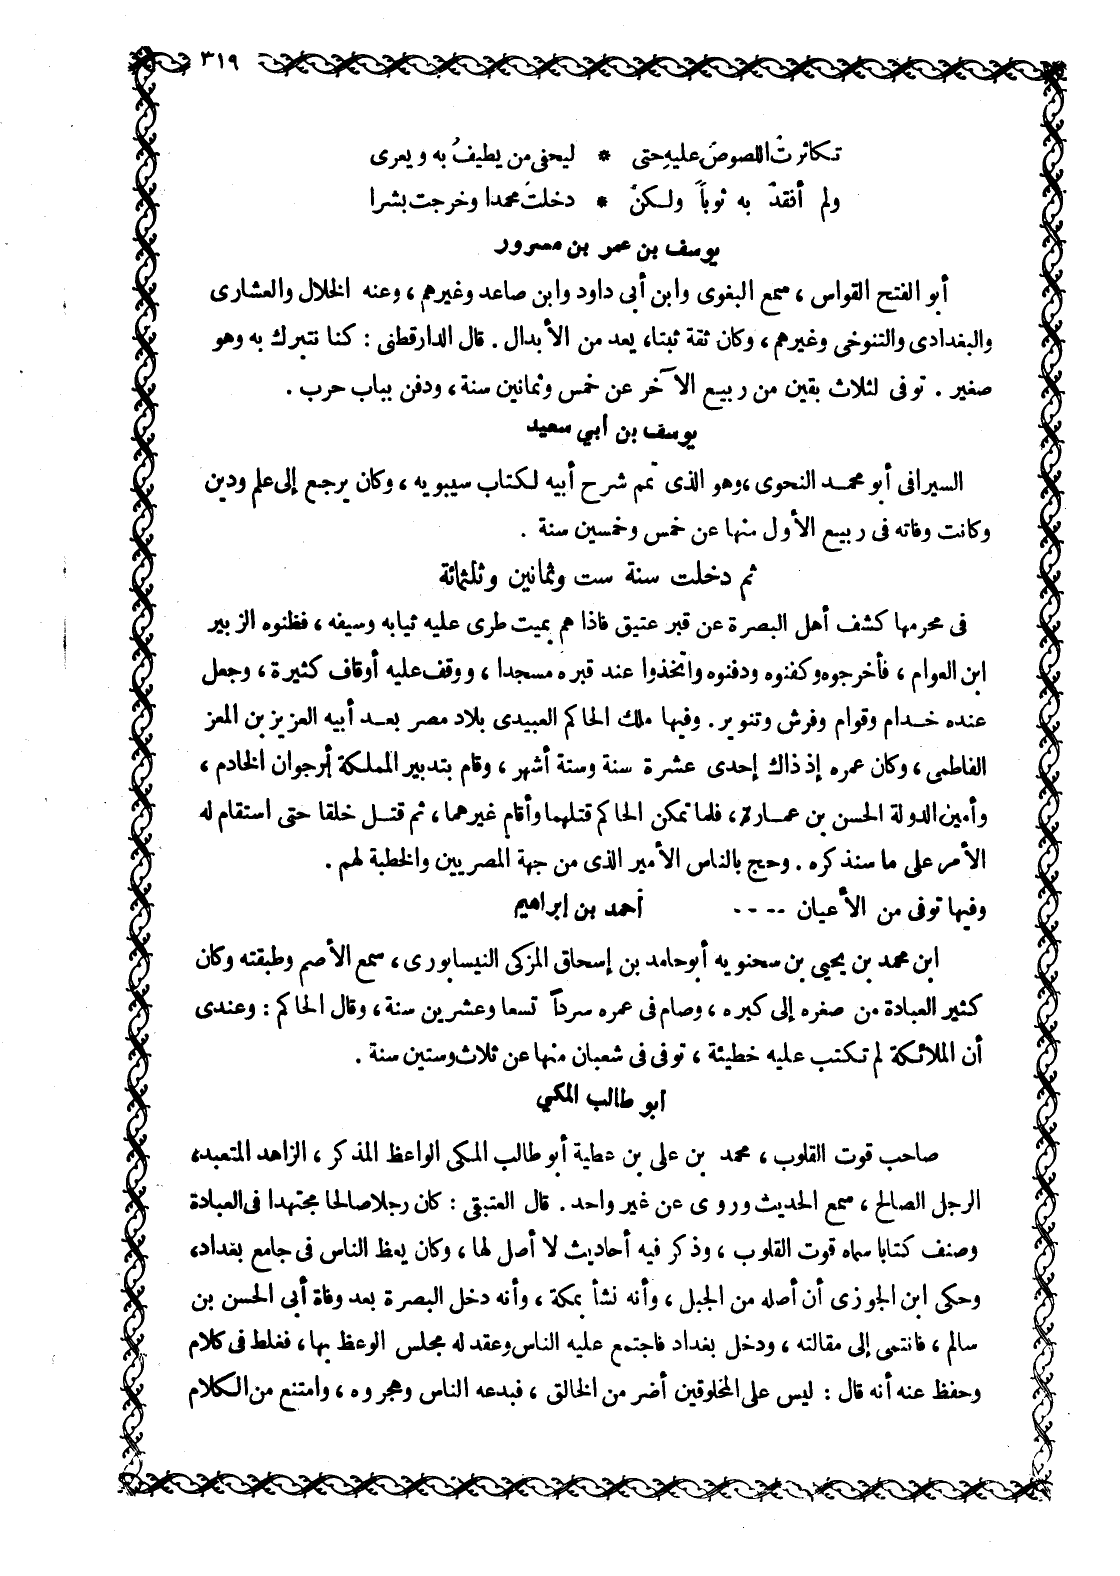 ٣١٩
تكاثرت اللصوص عليه حتى * ليحفى من يطيف به ويعرى
ولم أفقد به ثوباً ولكن * دخلت محمدا وخرجت بشرا
يوسف بن عمر بن مسرور
أبو الفتح القواس ، سمع البغوى وابن أبى داود وابن صاعد وغيرهم ، وعنه الخلال والعشارى
والبغدادى والتنوخى وغيرهم ، وكان ثقة ثبتا، يعد من الأبدال . قال الدارقطنى : كنا نتبرك به وهو
صغير . توفى لثلاث بقين من ربيع الآخر عن خمس وثمانين سنة ، ودفن بباب حرب .
يوسف بن أبي سعيد
السيرافى أبو محمد النحوى ،وهو الذى تمم شرح أبيه لكتاب سيبويه ، وكان يرجع إلى علم ودين
وكانت وفاته فى ربيع الأول منها عن خمس وخمسين سنة .
ثم دخلت سنة ست وثمانين وثلثمائة
فى محرمها كشف أهل البصرة عن قبر عتيق فاذا هم بميت طرى عليه ثيابه وسيفه ، فظنوه الزبير
ابن العوام ، فأخرجوه وكفنوه ودفنوه واتخذوا عند قبره مسجدا ، ووقف عليه أوقاف كثيرة ، وجعل
عنده خدام وقوام وفرش وتنوير. وفيها ملك الحاكم العبيدى بلاد مصر بعد أبيه العزيز بن المعز
الفاطمى ، وكان عمره إذ ذاك إحدى عشرة سنة وستة أشهر ، وقام بتدبير المملكة أرجوان الخادم ،
وأمين الدولة الحسن بن عمار ، فلما تمكن الحاكم قتلهما وأقام غيرهما ، ثم قتل خلقا حتى استقام له
الأمر على ما سنذكره . وحج بالناس الأمير الذى من جهة المصريين والخطبة لهم .
وفيها توفى من الأعيان ---- أحمد بن إبراهيم
ابن محمد بن يحيى بن سحنويه أبو حامد بن إسحاق المزكى النيسابورى ، سمع الأصم وطبقته وكان
كثير العبادة من صغره إلى كبره ، وصام فى عمره سرداً تسعا وعشرين سنة ، وقال الحاكم : وعندى
أن الملائكة لم تكتب عليه خطيئة ، توفى فى شعبان منها عن ثلاث وستين سنة .
أبو طالب المكي
صاحب قوت القلوب ، محمد بن على بن عطية أبو طالب المكى الواعظ المذكر ، الزاهد المتعبد،
الرجل الصالح ، سمع الحديث وروى عن غير واحد . قال العتيقى : كان رجلا صالحا مجتهدا فى العبادة
وصنف كتابا سماه قوت القلوب ، وذكر فيه أحاديث لا أصل لها ، وكان يعظ الناس فى جامع بغداد،
وحكى ابن الجوزى أن أصله من الجبل ، وأنه نشأ بمكة ، وأنه دخل البصرة بعد وفاة أبى الحسن بن
سالم ، فانتمى إلى مقالته ، ودخل بغداد فاجتمع عليه الناس وعقد له مجلس الوعظ بها ، فغلط فى كلام
وحفظ عنه أنه قال : ليس على المخلوقين أضر من الخالق ، فبدعه الناس وهجروه ، وامتنع من الكلام